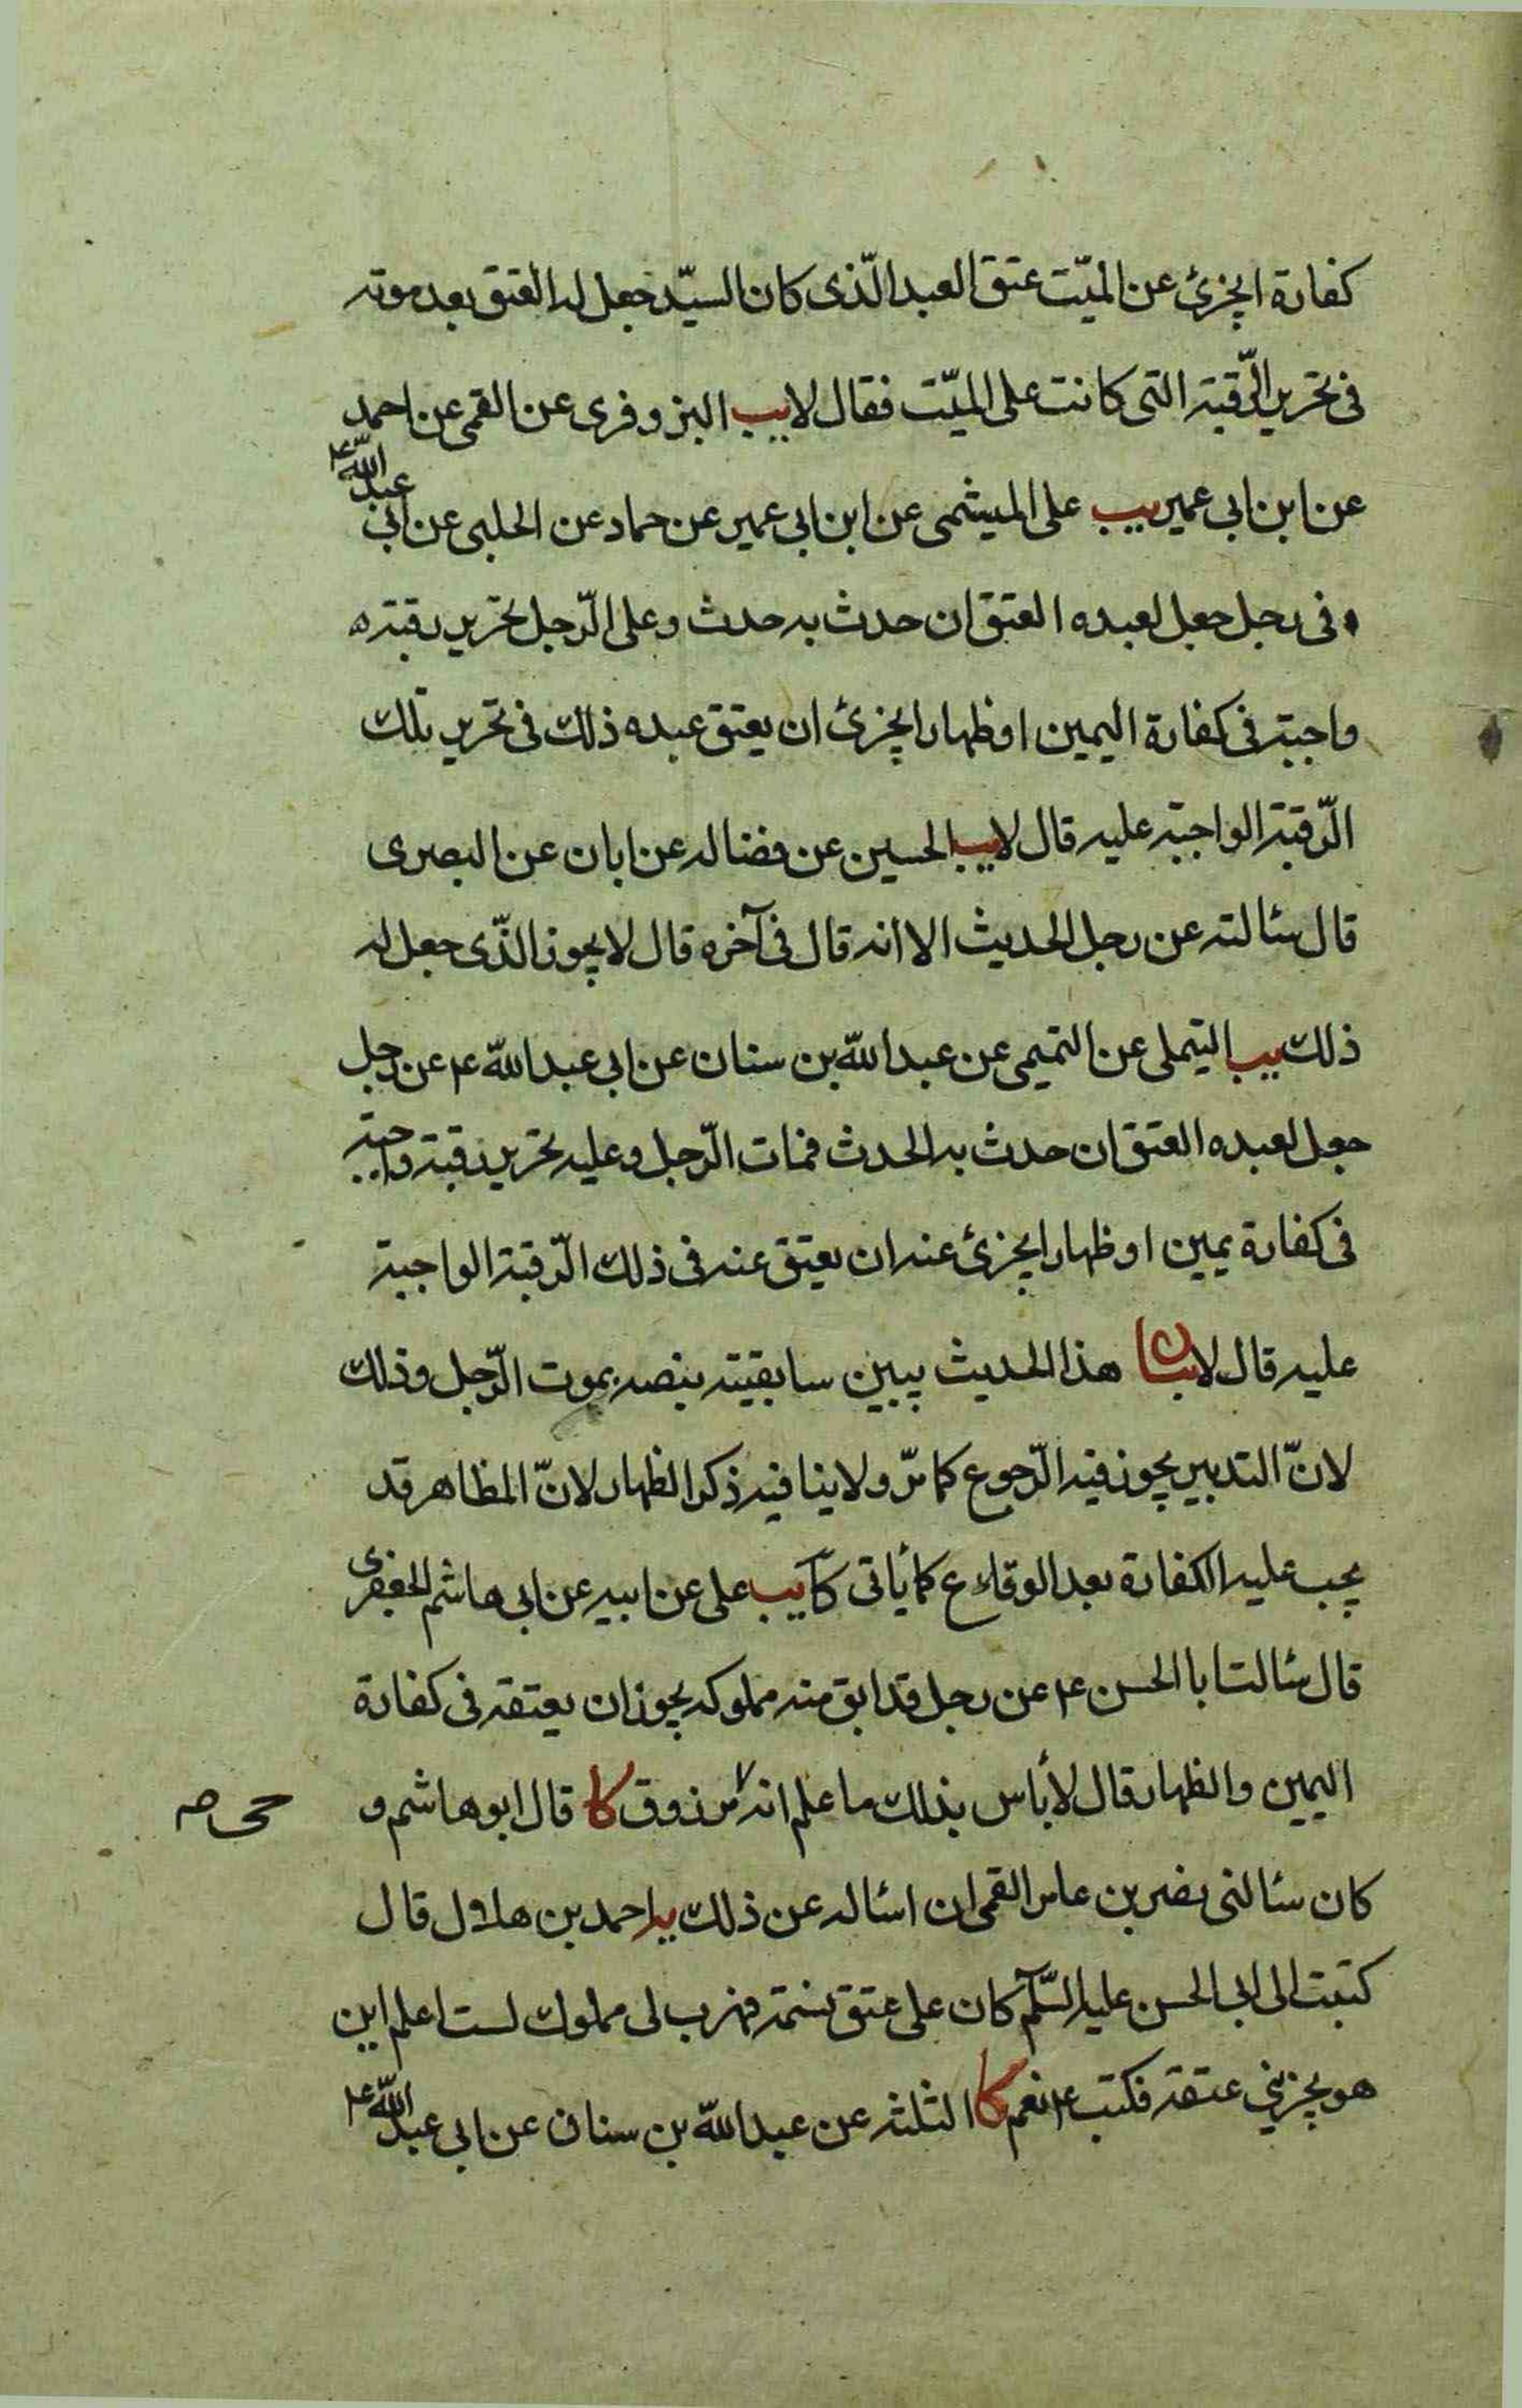 كفارة ايجزئ عن الميّت عتق العبد الّذى كان السيّد جعل له العتق بعد موته
فى تحرير الرّقبة التى كانت على الميّت فقال لا يب البزوفرى عن القمى عن احمد
عن ابن ابى عمير يب على الميثمى عن ابن ابى عمير عن حماد عن الحلبى عن ابى عبد اللّه ع
فى رجل جعل لعبده العتق ان حدث به حدث وعلى الرّجل تحرير رقبة
واجبة فى كفارة اليمين او ظهار ايجزئ ان يعتق عبده ذلك فى تحرير تلك
الرّقبة الواجبة عليه قال لا يب الحسين عن فضاله عن ابان عن البصرى
قال سئالته عن رجل الحديث الا انه قال فى آخره قال لا يجوز الّذى جعل له
ذلك يب التيملى عن التميمى عن عبد اللّه بن سنان عن ابى عبد اللّه ع عن رجل
جعل لعبده العتق ان حدث به الحدث فمات الرّجل وعليه تحرير رقبة واجبة
فى كفارة يمين او ظهار ايجزئ عنه ان يعتق عنه فى ذلك الرّقبة الواجبة
عليه قال لا بيان هذا الحديث يبين سابقيته بنصه بموت الرّجل وذلك
لانّ التدبير يجوز فيه الرّجوع كما مرّ ولا ينافيه ذكر الظهار لانّ المظاهر قد
يجب عليه الكفارة بعد الوقاع كما يأتى كا يب على عن ابيه عن ابى هاشم الجعفرى
قال سئالت ابا الحسن ع عن رجل قد ابق منه مملوكه يجوز ان يعتقه فى كفارة
اليمين والظهار قال لا بأس بذلك ما علم انه مرزوق كا قال ابو هاشم و
حى م
كان سئالنى نصر بن عامر القمى ان اسئاله عن ذلك يه احمد بن هلال قال
كتبت الى ابى الحسن عليه السّلم كان على عتق نسمة فهرب لى مملوك لست اعلم اين
هو يجزينى عتقه فكتب ع نعم كا الثلثه عن عبد اللّه بن سنان عن ابى عبد اللّه ع